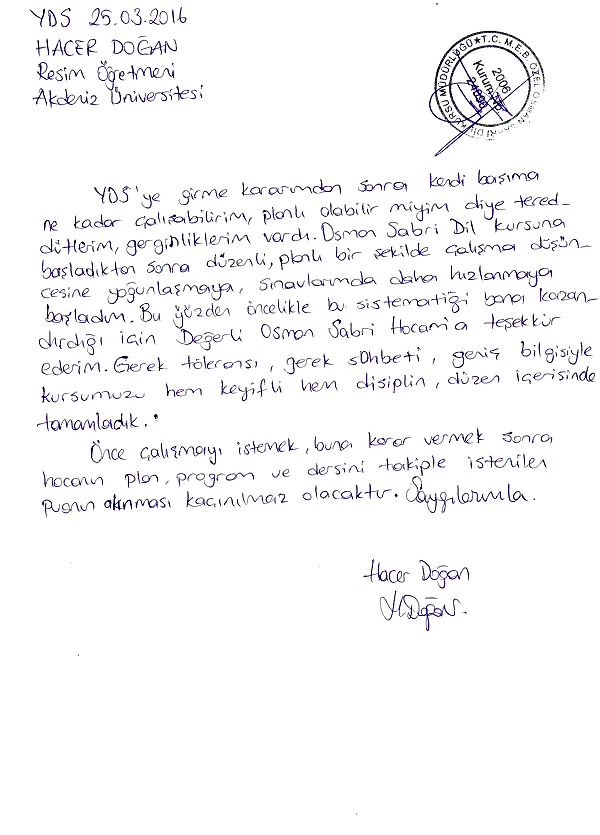 YDS 25.03.2016
HACER DOĞAN
Resim Öğretmeni
Akdeniz Üniversitesi
T.C. M.E.B. ÖZEL OSMAN SABRİ DİL KURSU MÜDÜRLÜĞÜ
2006
YDS'ye girme kararımdan sonra kendi başıma
ne kadar çalışabilirim, planlı olabilir miyim diye tered-
dütlerim, gerginliklerim vardı. Osman Sabri Dil kursuna
başladıktan sonra düzenli, planlı bir şekilde çalışma düşün-
cesine yoğunlaşmaya, sınavlarımda daha hızlanmaya
başladım. Bu yüzden öncelikle bu sistematiği bana kazan-
dırdığı için Değerli Osman Sabri Hocam'a teşekkür
ederim. Gerek töleransı, gerek sohbeti, geniş bilgisiyle
kursumuzu hem keyifli hem disiplin, düzen içerisinde
tamamladık.
Önce çalışmayı istemek, buna karar vermek sonra
hocanın plan, program ve dersini takiple istenilen
puanın alınması kaçınılmaz olacaktır. Saygılarımla.
Hacer Doğan
HDoğan.